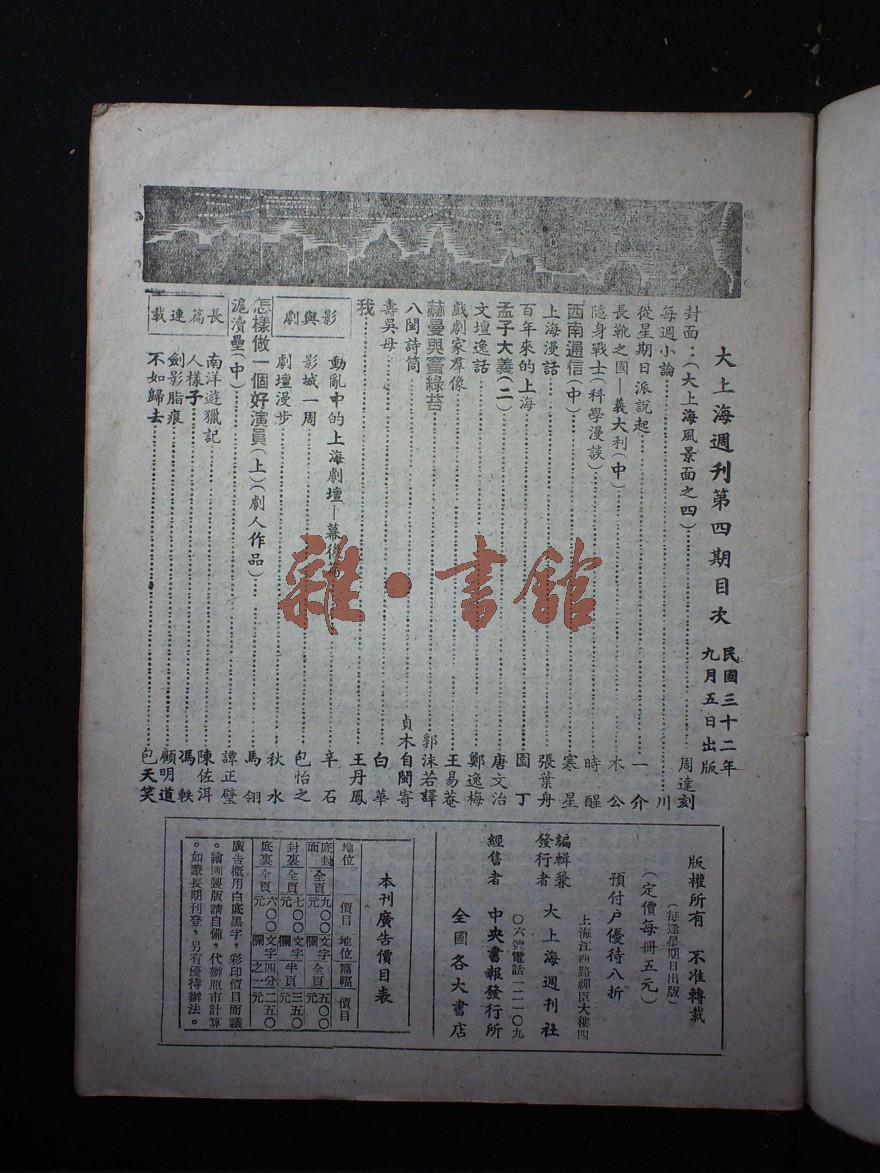 大上海週刊第四期目次
民國三十二年
九月五日出版
封面：（大上海風景面之四）周達刻
每週小論川
從星期日派說起一介
長靴之國—義大利（中）木公
隱身戰士（科學漫談）時醒
西南通信（中）寒星
上海漫話張葉舟
百年來的上海園丁
孟子大義（二）唐文治
文壇逸話鄭逸梅
戲劇家羣像王易菴
赫曼與竇綠苔郭沫若譯
八閩詩筒貞木自閩寄
壽吳母白華
我王丹鳳
影與劇
動亂中的上海劇壇—幕後辛石
影城一周包怡之
劇壇漫步秋水
怎樣做一個好演員（上）（劇人作品）馬翎
滬瀆壘（中）譚正璧
長篇連載
南洋遊獵記陳佐洱
人樣子馮軼
劍影脂痕顧明道
不如歸去包天笑
版權所有 不准轉載
（每逢星期日出版）
（定價每冊五元）
預付户優待八折
上海江西路禪臣大樓四
〇六號電話一二一〇九
編輯兼
發行者 大上海週刊社
經售者 中央書報發行所
全國各大書店
本刊廣告價目表
地位 價目 地位 篇幅 價目
底封面 全頁 九〇〇元 文字欄 全頁 五〇〇元
封裏 全頁 七〇〇元 文字欄 半頁 三五〇元
底裏 全頁 六〇〇元 文字欄 四分之一 二五〇元
廣告概用白底黑字，彩印價目面議
。繪圖製版請自備，代辦照市計算
。如蒙長期刊登，另有優待辦法。
雜·書館